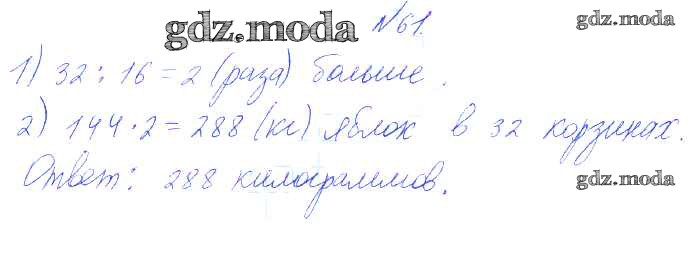 gdz.moda №61.
gdz.moda
1) 32 : 16 = 2 (раза) больше.
2) 144 · 2 = 288 (кг) яблок в 32 корзинах.
Ответ: 288 килограммов.
gdz.moda